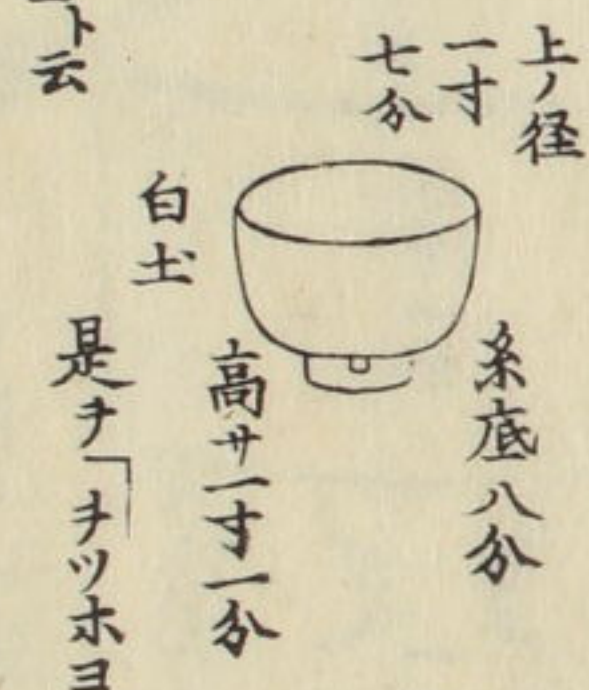 上ノ径
一寸
七分
糸底八分
高サ一寸一分
白土
是ヲ「ヲツホヨ
ト云